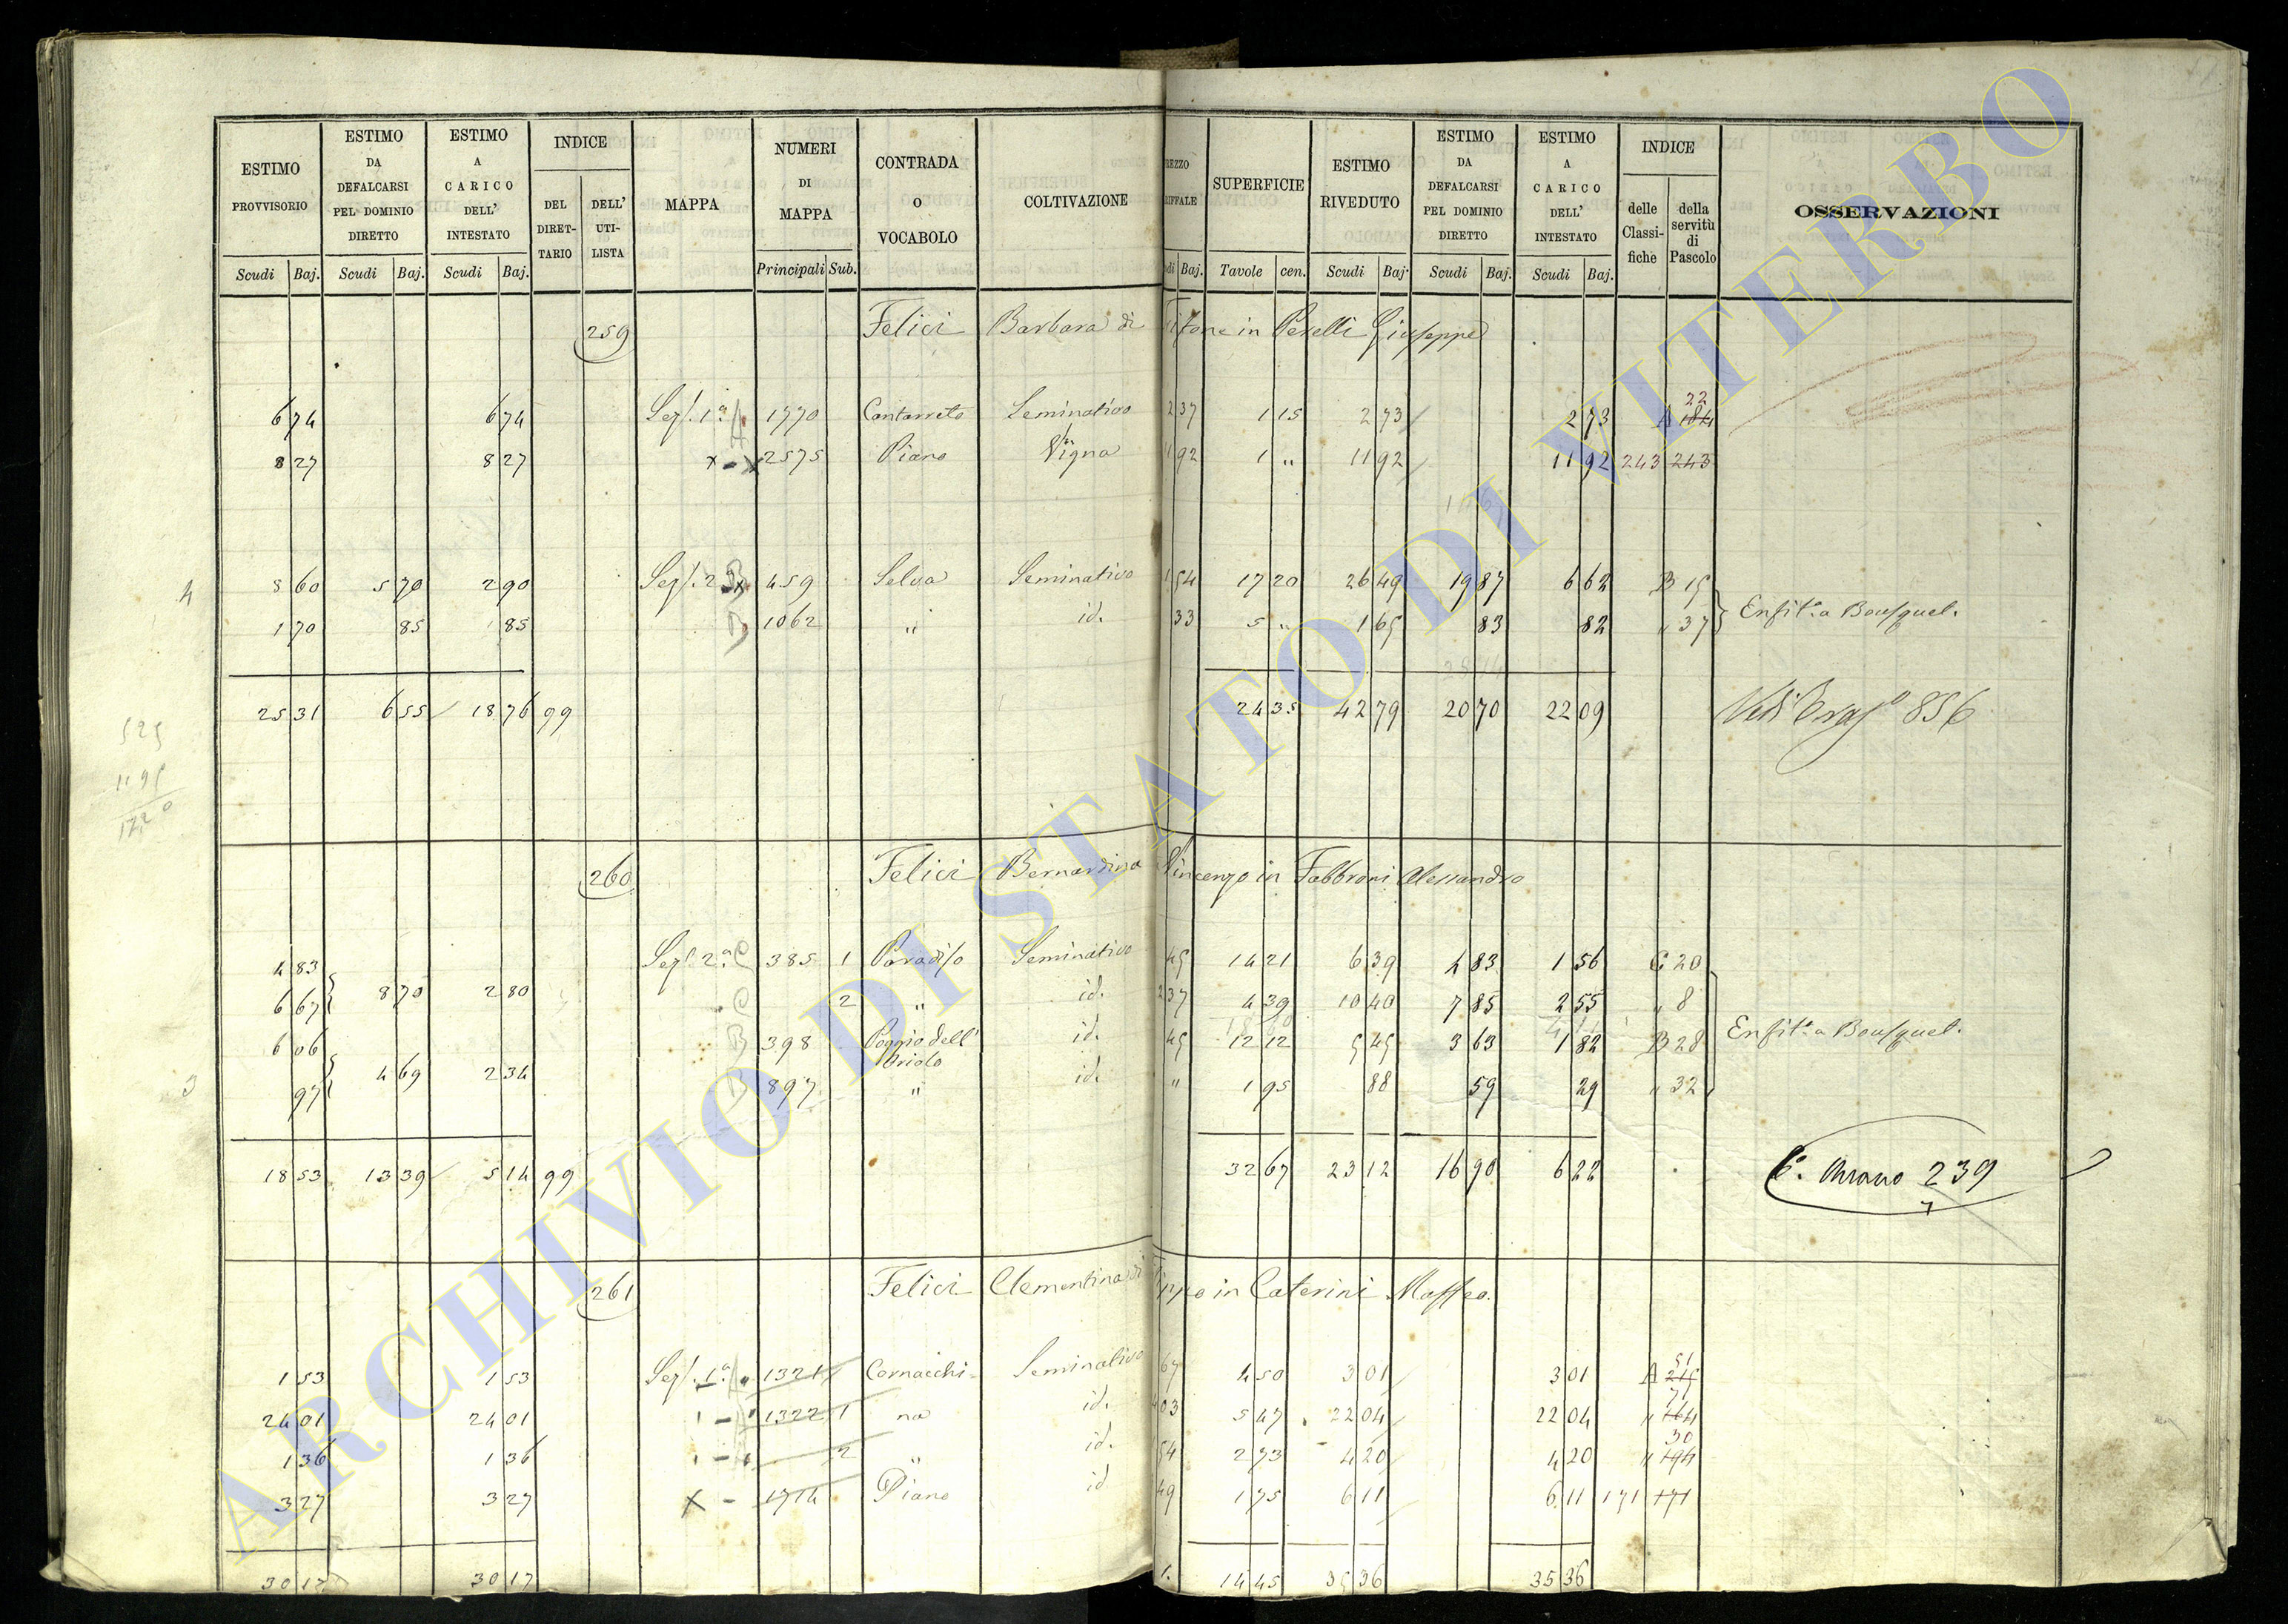 ESTIMO PROVVISORIO Scudi Baj. ESTIMO DA DEFALCARSI PEL DOMINIO DIRETTO Scudi Baj. ESTIMO A CARICO DELL' INTESTATO Scudi Baj. INDICE DEL DIRETTARIO DELL' UTILISTA MAPPA NUMERI DI MAPPA Principali Sub. CONTRADA O VOCABOLO COLTIVAZIONE Baj. SUPERFICIE Tavole cen. ESTIMO RIVEDUTO Scudi Baj. ESTIMO DA DEFALCARSI PEL DOMINIO DIRETTO Scudi Baj. ESTIMO A CARICO DELL' INTESTATO Scudi Baj. INDICE delle Classifiche della servitù di Pascolo OSSERVAZIONI
259 Felici Barbara di in Perelli Giuseppe
22
6 74 6 74 Sez. 1ª 1770 Cantarreto Seminativo 2 37 1 15 2 73 2 73 A 184
8 27 8 27 2575 Piano Vigna 11 92 1 " 11 92 11 92 243 243
8 60 5 70 2 90 Sez. 2ª 459 Selva Seminativo 1 54 17 20 26 49 19 87 6 62 B 15
4
1 70 85 85 B 1062 " id. 33 5 " 1 65 83 82 " 37 Enfit. a Bousquet.
25 31 6 55 18 76 99 24 35 42 79 20 70 22 09 856
525
1195
1720
260 Felici Bernardina Vincenzo in Fabbroni Alessandro
4 83 Sez. 2ª C 385 1 Paradiso Seminativo 45 14 21 6 39 4 83 1 56 C 20
6 67 8 70 2 80 C 2 " id. 2 37 4 39 10 40 7 85 2 55 " 8
6 06 B 398 Poggio dell' Oriolo id. 45 12 12 5 45 3 63 1 82 B 28 Enfit. a Bousquet.
3 97 4 69 2 34 B 897 " id. " 1 95 88 59 29 " 32
18 53 13 39 5 14 99 32 67 23 12 16 90 6 22 239
261 Felici Clementina di in Caterini Maffeo.
51
1 53 1 53 Sez. 1ª 1321 Cornacchi- Seminativo 67 4 50 3 01 3 01 A 215
71
24 01 24 01 1322 1 na id. 4 03 5 47 22 04 22 04 " 164
30
1 36 1 36 2 " id. 54 2 73 4 20 4 20 " 194
3 27 3 27 X 1714 Piano id 49 1 75 6 11 6 11 171 171
30 17 30 17 14 45 35 36 35 36
ARCHIVIO DI STATO DI VITERBO